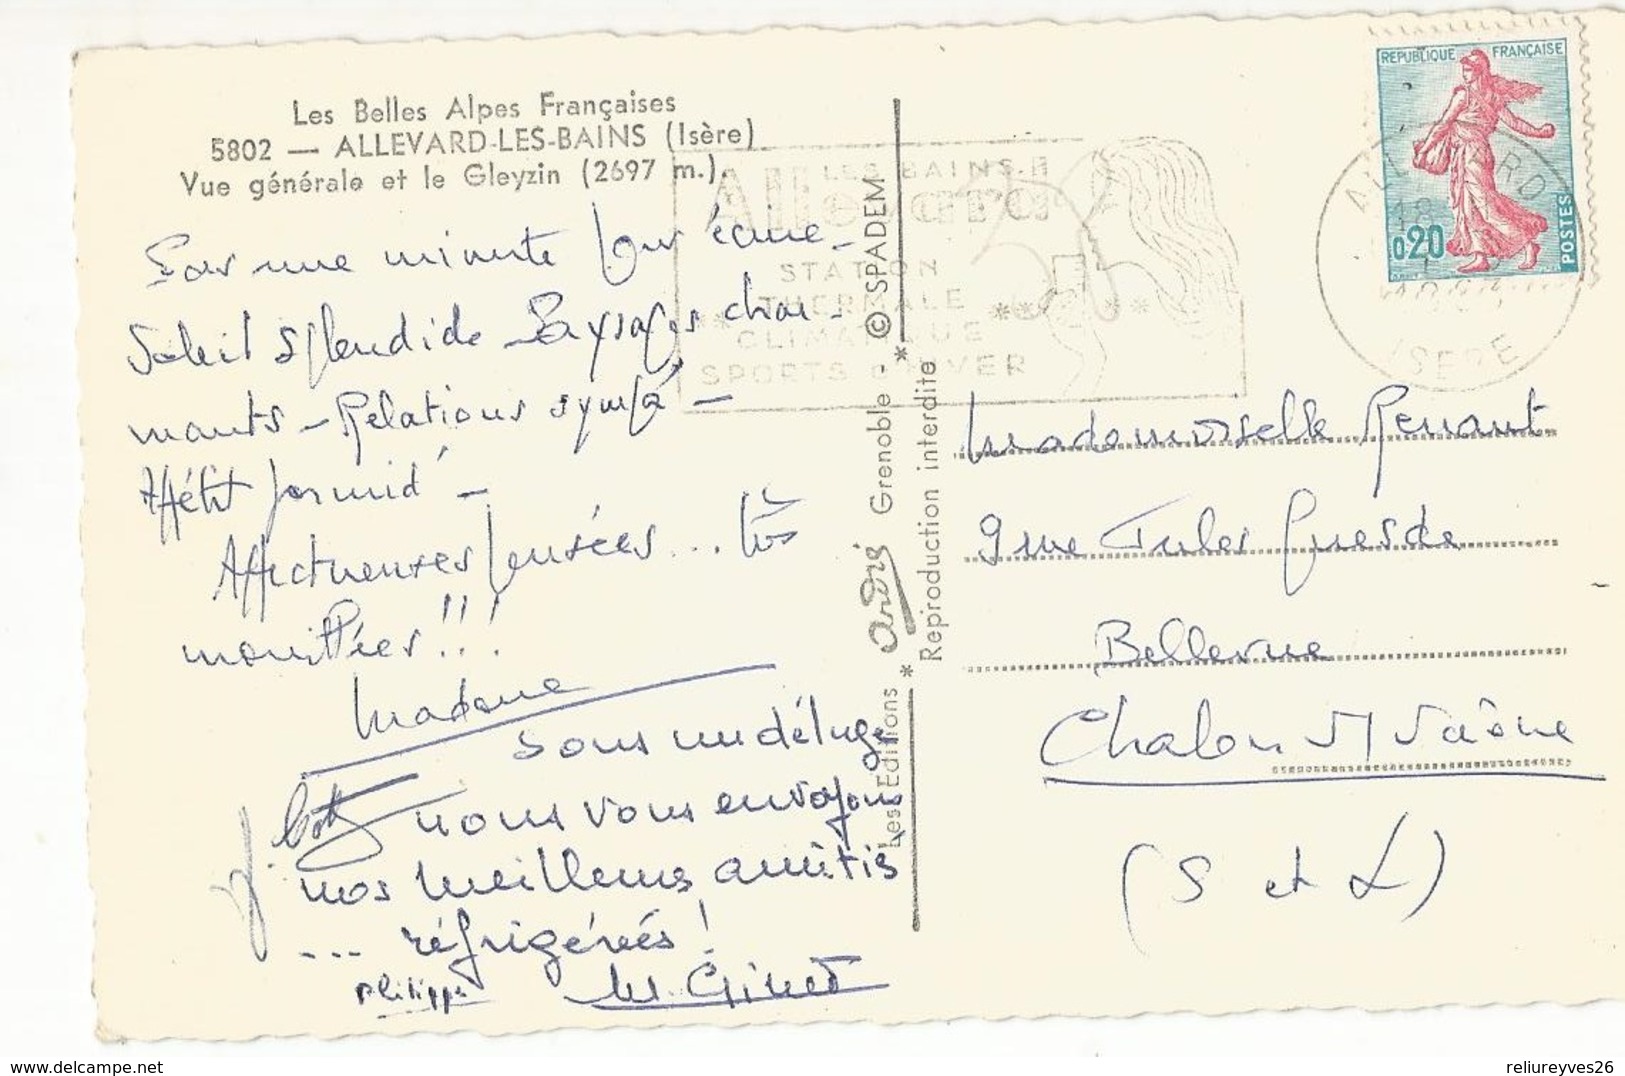 Les Belles Alpes Françaises
5802 — ALLEVARD-LES-BAINS (Isère)
Vue générale et le Gleyzin (2697 m.).
Pas une minute pour écrire -
Soleil splendide - Paysages char -
mants - Relations sympa -
Appétit formid' -
Affectueuses pensées... très
mouillées!!!
Madame
Sous un déluge
nous vous envoyons
nos meilleures amitiés
... réfrigérées!
Philippe M. Ginet
Les Editions * ardis Grenoble - * © SPADEM
Reproduction interdite
LES BAINS
Allevard
STATION
THERMALE
CLIMATIQUE
SPORTS D'HIVER
REPUBLIQUE FRANÇAISE
0,20
POSTES
ALLEVARD
18
ISERE
Mademoiselle Renaut
9 rue Jules Guesde
Bellevue
Chalon s/ Saône
(S et L)
reliureyves26